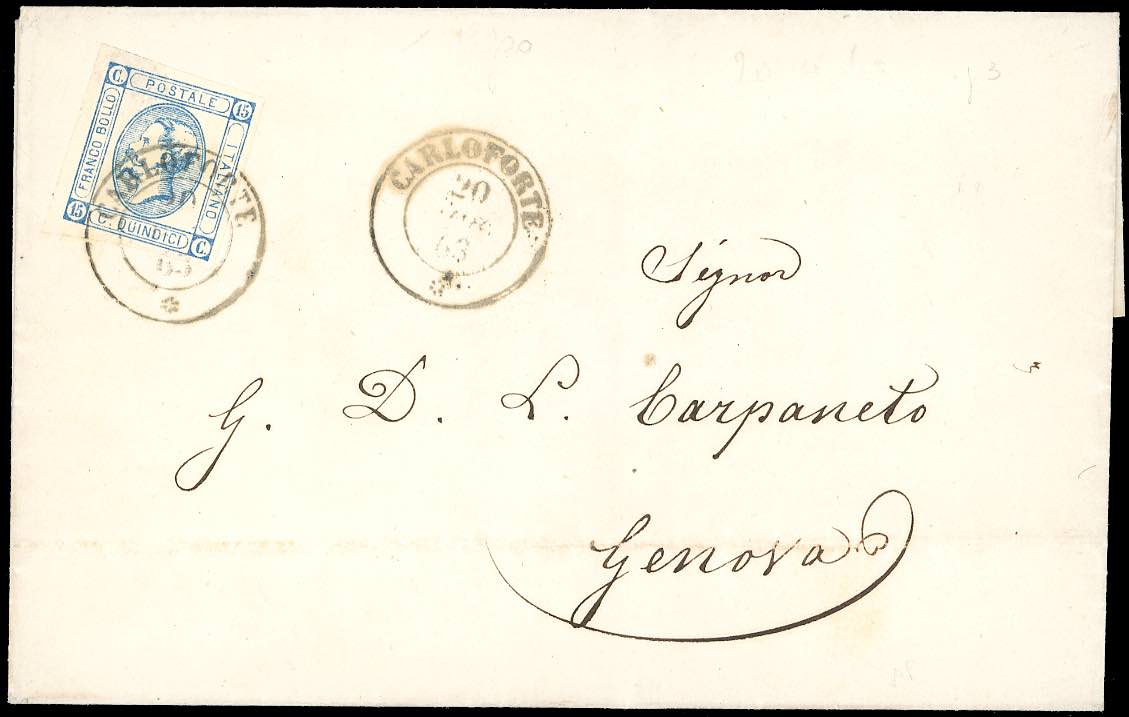 C. POSTALE 15
FRANCO BOLLO
ITALIANO
15 C. QUINDICI C.
CARLOFORTE
63
CARLOFORTE
20
63
Signor
G. D. L. Carpaneto
Genova
3